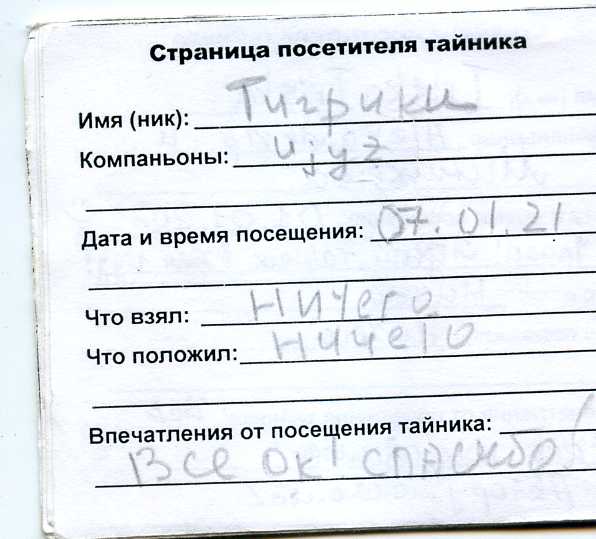 Страница посетителя тайника
Имя (ник): Тигрики
Компаньоны: и jyz
Дата и время посещения: 07.01.21
Что взял: Ничего
Что положил: Ничего
Впечатления от посещения тайника:
Все ок! спасибо!